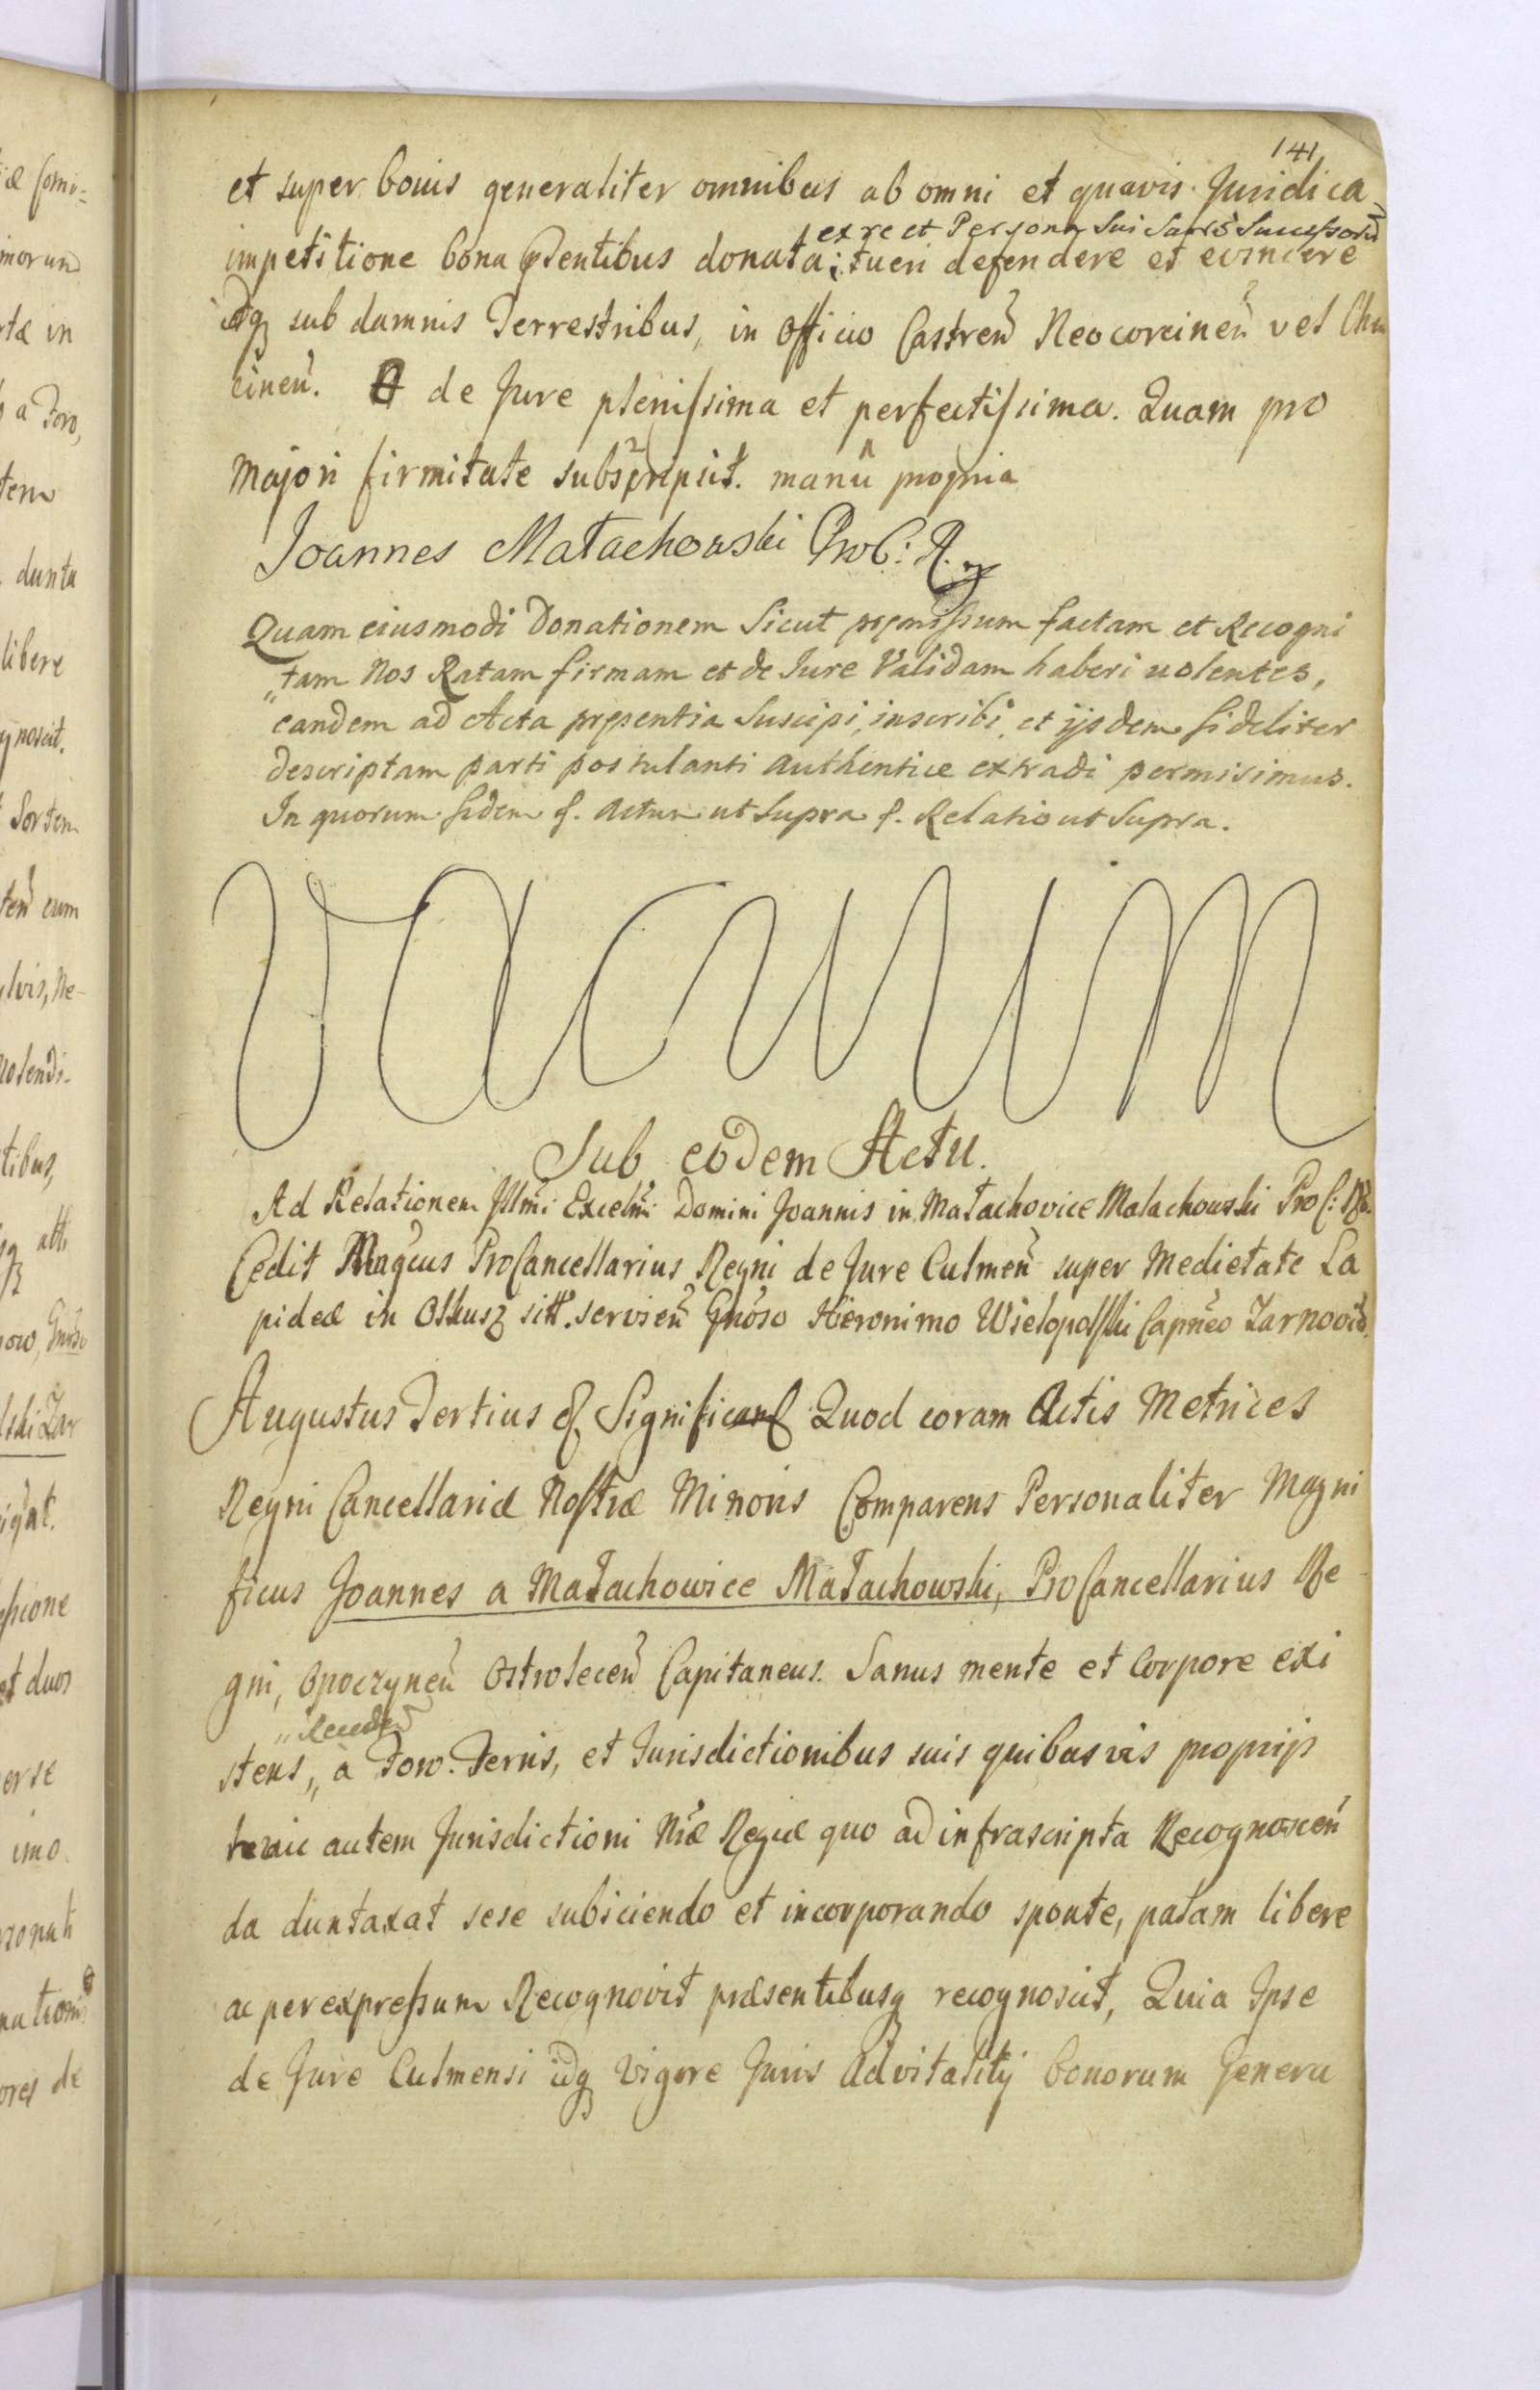 141
et super bonis generaliter omnibus ab omni et quavis Juridica
ex re et Persona sui suorũ Successorũ
impetitione bona pñtentibus donata; tueri defendere et evincere
idq sub damnis Terrestribus, in Officio Castreñ Neocorcineñ vel Chę
cineñ. de Jure plenissima et perfectissima. Quam pro
Majori firmitate subscripsit. manû propria
Joannes Małachowski ProC: R.
Quam eiusmodi Donationem Sicut pręmissum factam et Recogni
"tam Nos Ratam firmam et de Iure Validam haberi volentes,
eandem ad Acta pręsentia Suscipi, inscribi, et ijsdem fideliter
descriptam parti postulanti Authentice extradi permisimus.
In quorum fidem &. Actum ut Supra &. Relatio ut Supra.
Vacuum
Sub eodem Actu.
Ad Relationem Jllmi Excelñi Domini Joannis in Małachovice Małachowski ProC: R.
Cedit Magcus ProCancellarius Regni de Jure Culmeñ super Medietate La
pideæ in Olkusz sitt. servieñ Gnôso Hieronimo Wielopolski Capñeo Zarnovieñ.
Augustus Tertius & Significand Quod coram Actis Metrices
Regni Cancellariæ Nostræ Minoris Comparens Personaliter Magni
ficus Joannes a Małachowice Małachowski, ProCancellarius Re
gni, Opoczyneñ Ostroleceñ Capitaneus. Sanus mente et Corpore exi
"Reced
stens,, a Foro. Terris, et Iurisdictionibus suis quibusvis proprijs
huic autem Jurisdictioni Nræ Regiæ quo ad infrascripta Recognosceñ
da duntaxat sese subiciendo et incorporando sponte, palam libere
ac per expressum Recognovit præsentibusq recognoscit, Quia Ipse
de Jure Culmensi idq Vigore Juris Advitalitij bonorum Genera